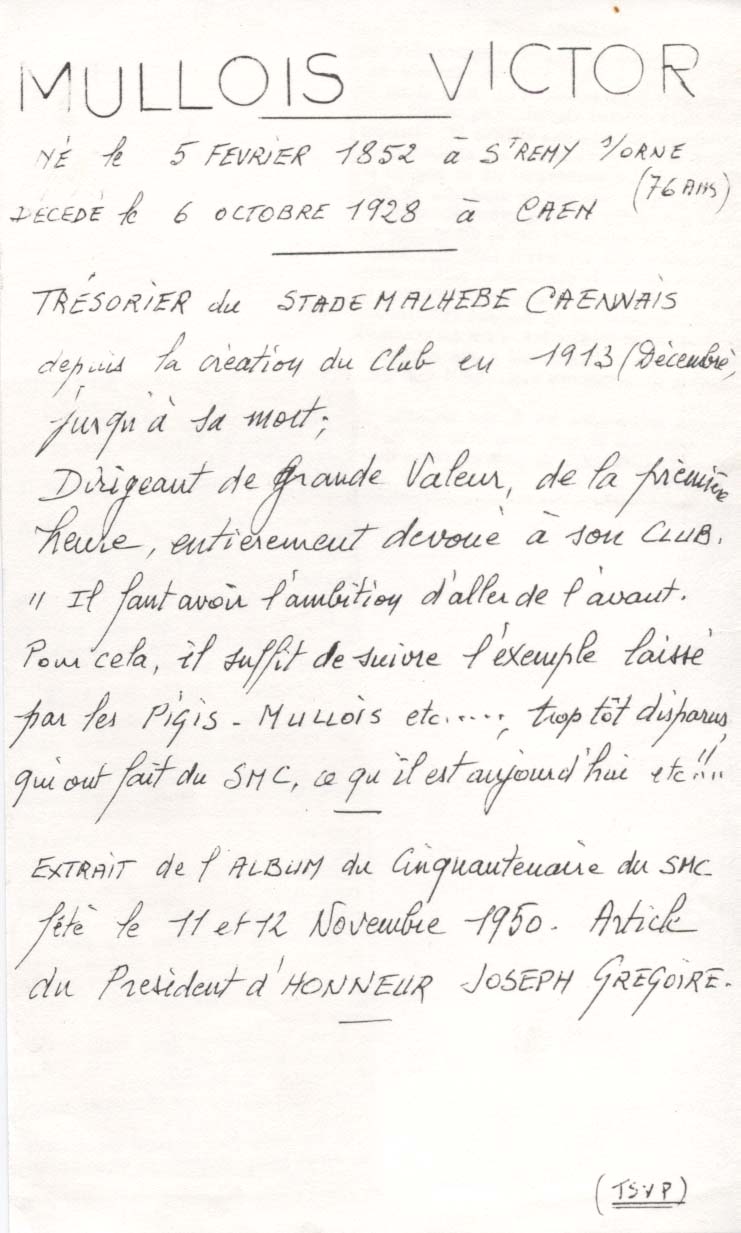 MULLOIS VICTOR
NÉ le 5 FEVRIER 1852 à ST REMY S/ORNE
DÉCEDÉ le 6 OCTOBRE 1928 à CAEN (76 Ans)
TRÉSORIER du STADE MALHEBE CAENNAIS
depuis la création du Club en 1913 (Décembre,
jusqu'à sa mort;
Dirigeant de Grande Valeur, de la première
heure, entièrement devoué à son CLUB.
" Il faut avoir l'ambition d'aller de l'avant.
Pour cela, il suffit de suivre l'exemple laissé
par les Pigis - MULLOIS etc....., trop tôt disparus,
qui ont fait du SMC, ce qu'il est aujourd'hui etc..."
EXTRAIT de l'ALBUM du Cinquantenaire du SMC
fêté le 11 et 12 Novembre 1950. Article
du Président d'HONNEUR JOSEPH GREGOIRE.
(TSVP)